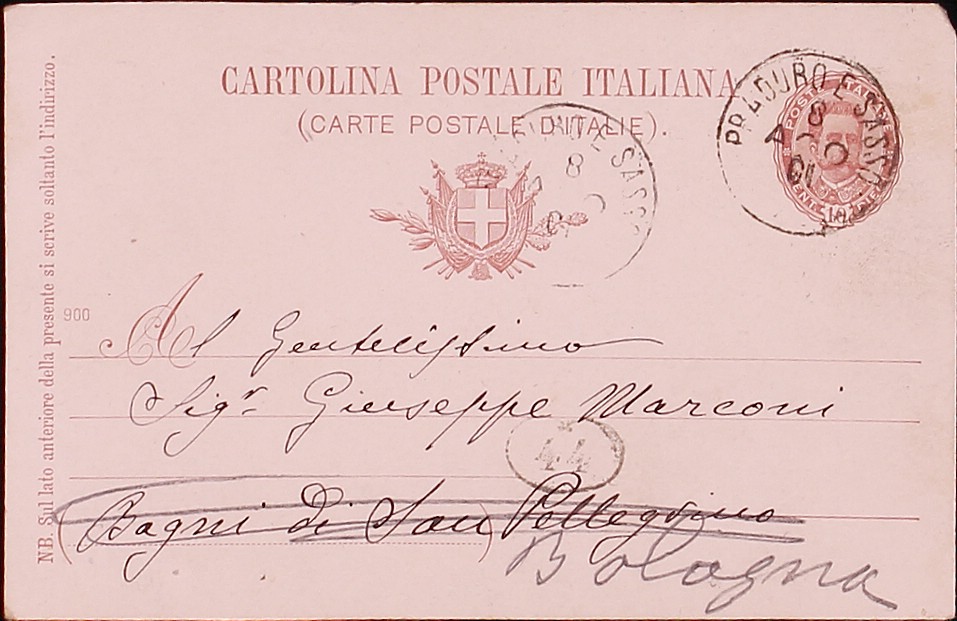 CARTOLINA POSTALE ITALIANA
(CARTE POSTALE D'ITALIE).
PRADURO E SASSO
8
01
POSTE ITALIANE
CENT. 10
E SASSO
8
900
Al Gentilissimo
Sigr. Giuseppe Marconi
44
Bagni di San Pellegrino
Bologna
NB. Sul lato anteriore della presente si scrive soltanto l'indirizzo.